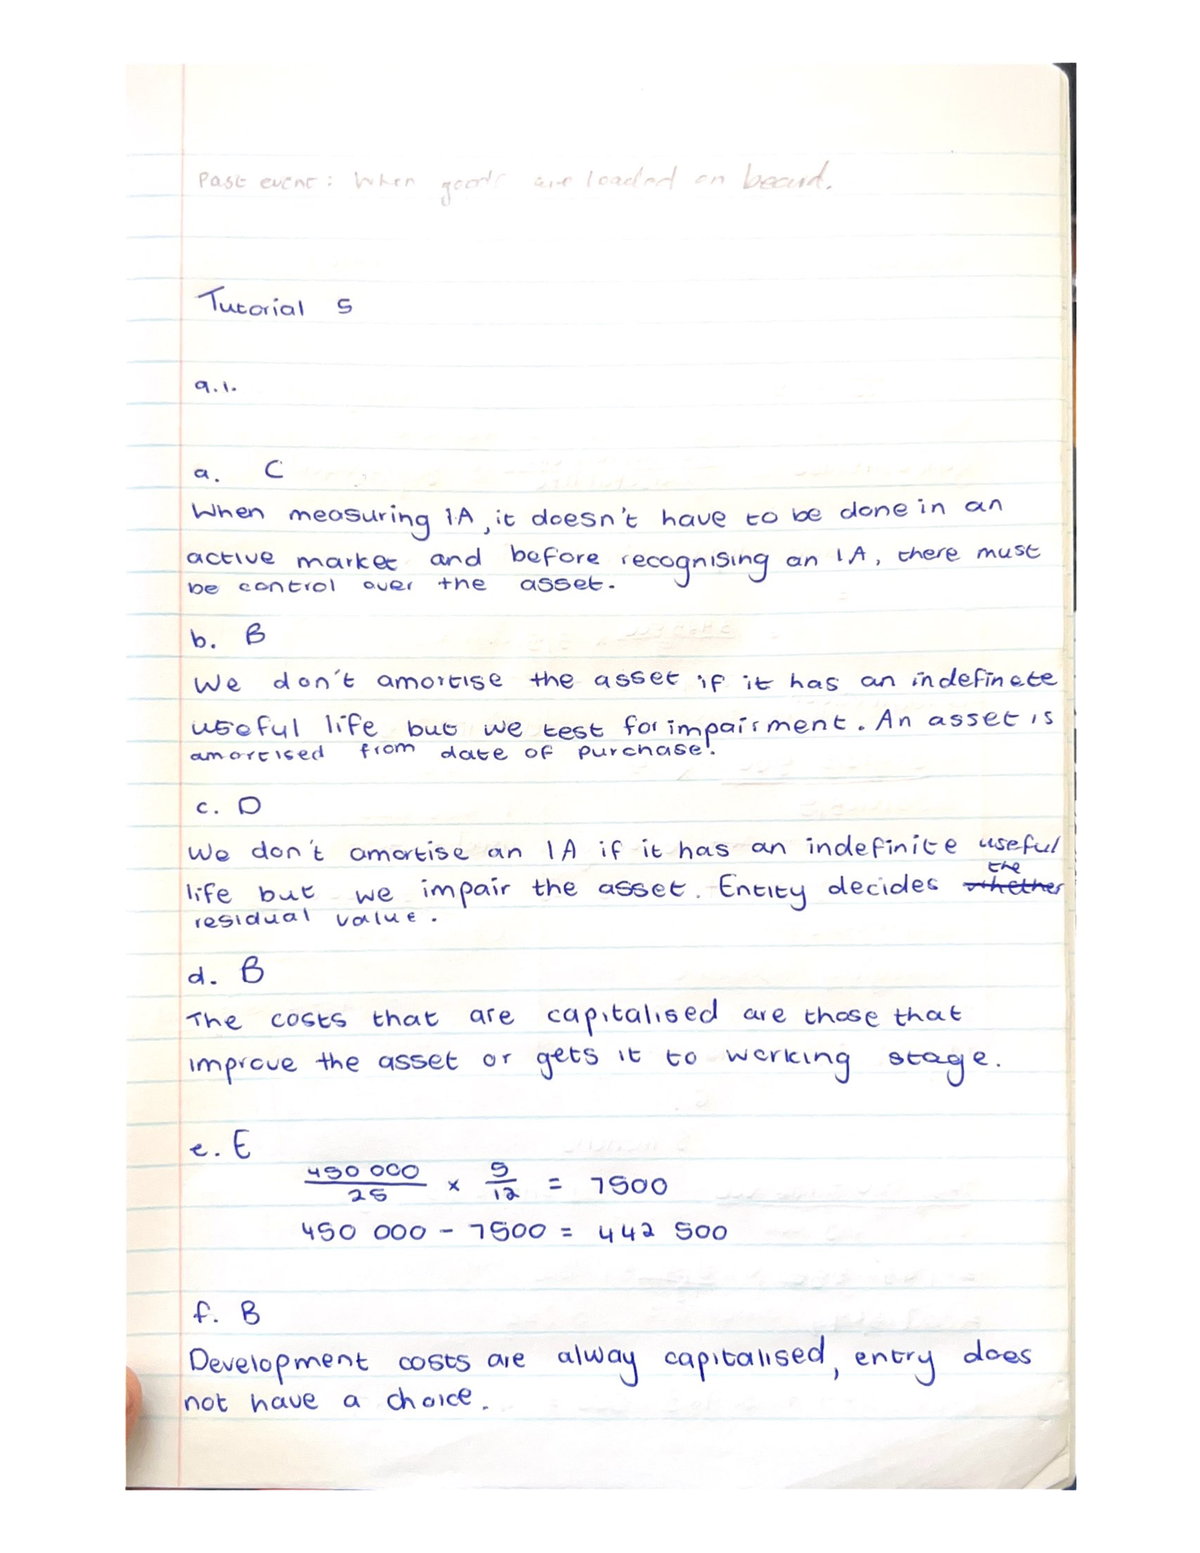 Past event: When goods are loaded on board.
Tutorial 5
q.1.
a. C
When measuring IA, it doesn't have to be done in an
active market and before recognising an IA, there must
be control over the asset.
b. B
We don't amortise the asset if it has an indefinete
useful life but we test for impairment. An asset is
amortised from date of purchase.
c. D
We don't amortise an IA if it has an indefinite useful
life but we impair the asset. Entity decides whether the
residual value.
d. B
The costs that are capitalised are those that
improve the asset or gets it to working stage.
e. E
450 000 / 25 × 5/12 = 7500
450 000 - 7500 = 442 500
f. B
Development costs are alway capitalised, entry does
not have a choice.